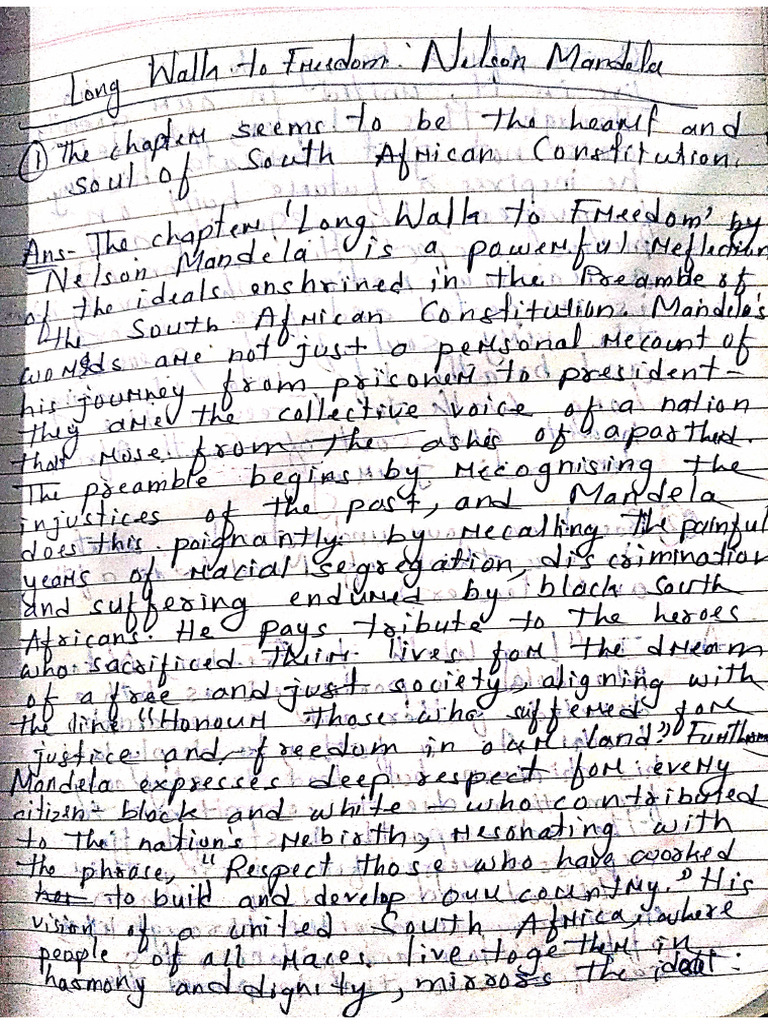 Long Walk to Freedom: Nelson Mandela
① The chapter seems to be the heart and
soul of South African Constitution.
Ans- The chapter 'Long Walk to Freedom' by
Nelson Mandela is a powerful reflection
of the ideals enshrined in the Preamble of
the South African Constitution. Mandela's
words are not just a personal recount of
his journey from priconer to president -
they are the collective voice of a nation
that rose from the ashes of apartheid.
The preamble begins by recognising the
injustices of the past, and Mandela
does this poignantly by recalling the painful
years of racial segregation, discrimination
and suffering endured by black south
Africans. He pays tribute to the heroes
who sacrificed their lives for the dream
of a free and just society, aligning with
the line "Honour those who suffered for
justice and freedom in our land."
Mandela expresses deep respect for every
citizen - black and white - who contributed
to the nation's rebirth, resonating with
the phrase, "Respect those who have worked
to build and develop our country." His
vision of a united South Africa, where
people of all races live together in
harmony and dignity, mirrors the ideal: